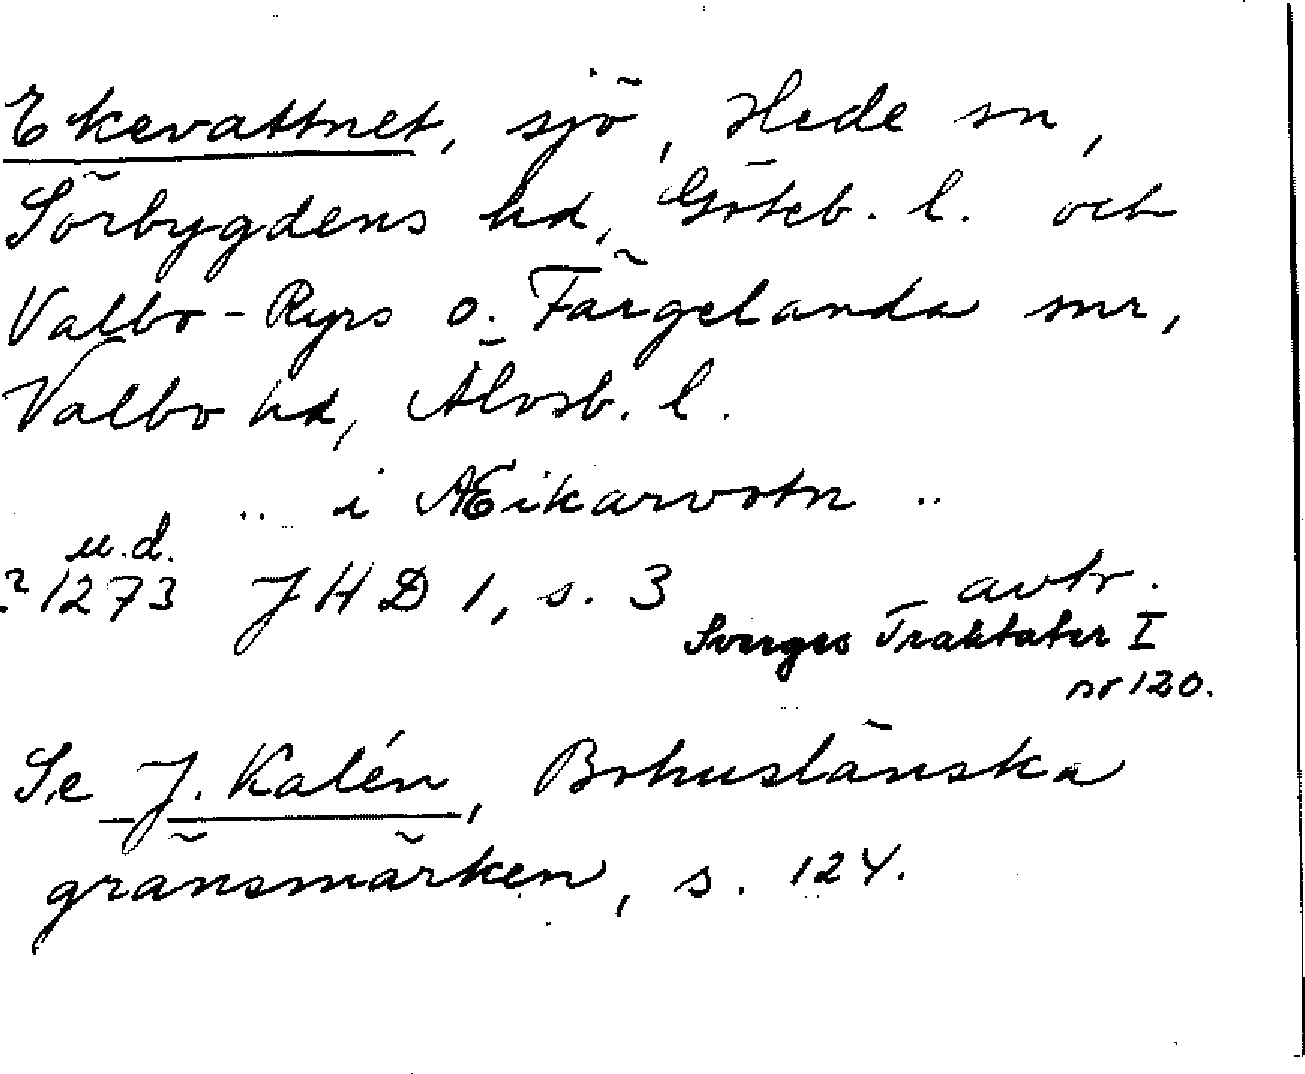 Ekevattnet, sjö, Hede sn,
Sörbygdens hd, Göteb. l. och
Valbo-Ryrs o. Färgelanda snr,
Valbo hd, Älvsb. l.
.. i Æikarvotn ..
u.d.
? 1273 JHD 1, s. 3 avtr.
Sverges Traktater I
nr 120.
Se J. Kalén, Bohuslänska
gränsmärken, s. 124.